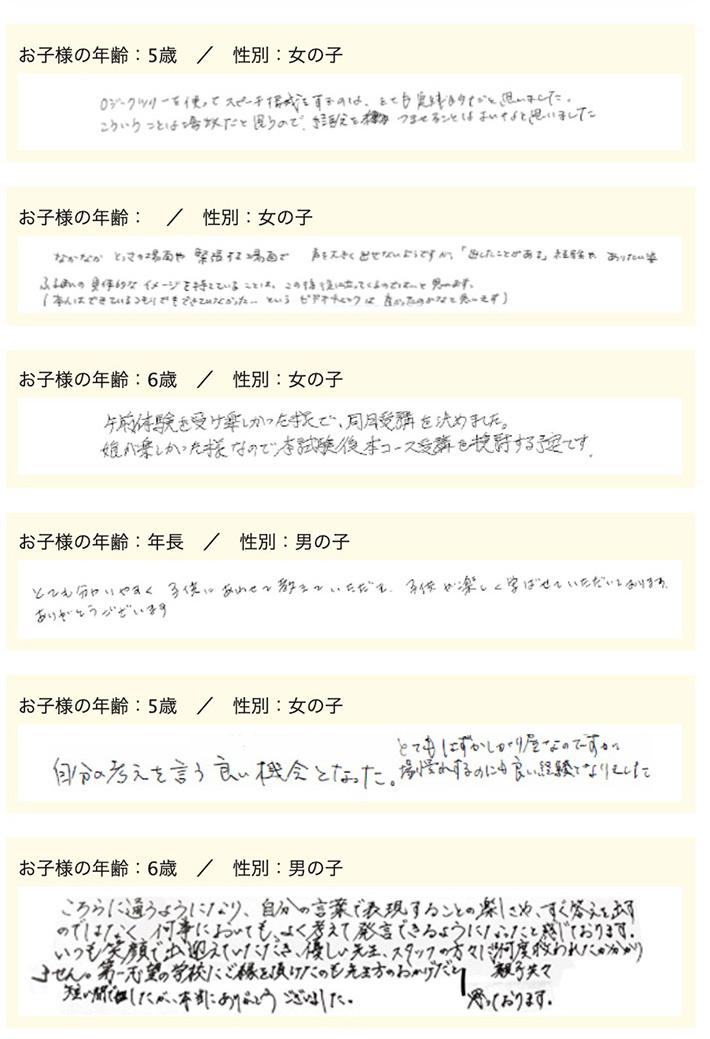 お子様の年齢：5歳　／　性別：女の子
ロジークツリーを使ってスピーチ構成をするのは、とても実践的だと思いました。
こういうことは場数だと思うので、経験をつませることはよいなと思いました
お子様の年齢：　／　性別：女の子
なかなか とっさの場面や 緊張する場面で 声を大きく出せないようですが、「出したことがある」経験や ありたい姿
ふるまいの具体的なイメージを持てていることは、この後役に立ってくるのではないかと思います。
(本人はできているつもりでもできていなかった… という ビデオチェックは 良かったのかなと思います)
お子様の年齢：6歳　／　性別：女の子
午前体験を受け楽しかった様で、同日受講を決めました。
娘が楽しかった様なので本試験後本コース受講を検討する予定です。
お子様の年齢：年長　／　性別：男の子
とても分かりやすく 子供にあわせて教えていただき、子供が楽しく学ばせていただいております。
ありがとうございます
お子様の年齢：5歳　／　性別：女の子
自分の考えを言う良い機会となった。
とてもはずかしがり屋なのですが
場慣れするのにも良い経験となりました
お子様の年齢：6歳　／　性別：男の子
こちらに通うようになり、自分の言葉で表現することの楽しさや、すぐ答えを出す
のではなく、何事においても、よく考えて発言できるようになったと感じております。
いつも笑顔で出迎えていただき、優しい先生、スタッフの方々に何度救われたか分かり
ません。第一志望の学校にご縁を頂けたのも先生方のおかげだと 親子共々
短い間でしたが、本当にありがとうございました。 思っております。